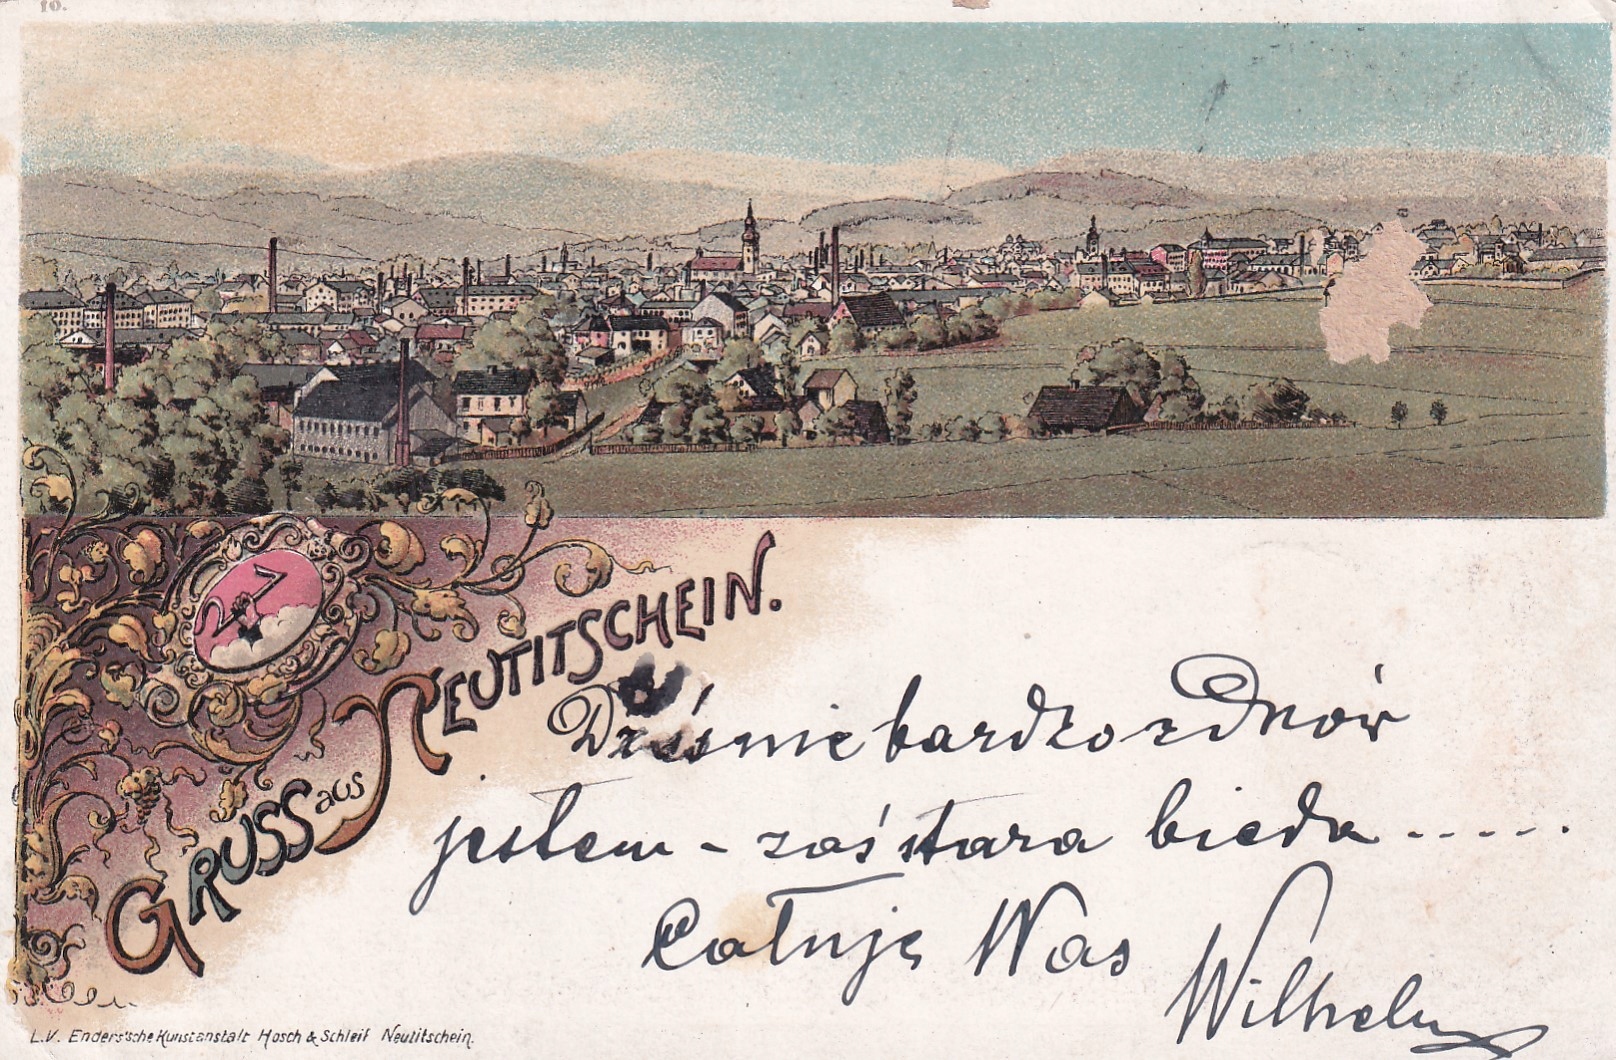 10.
27
GRUSS aus NEUTITSCHEIN.
Dziś nie bardzo zdrów
jestem - zaś stara bieda .....
Całuję Was
Wilhelm
L.V. Enders'sche Kunstanstalt Hosch & Schleif Neutitschein.